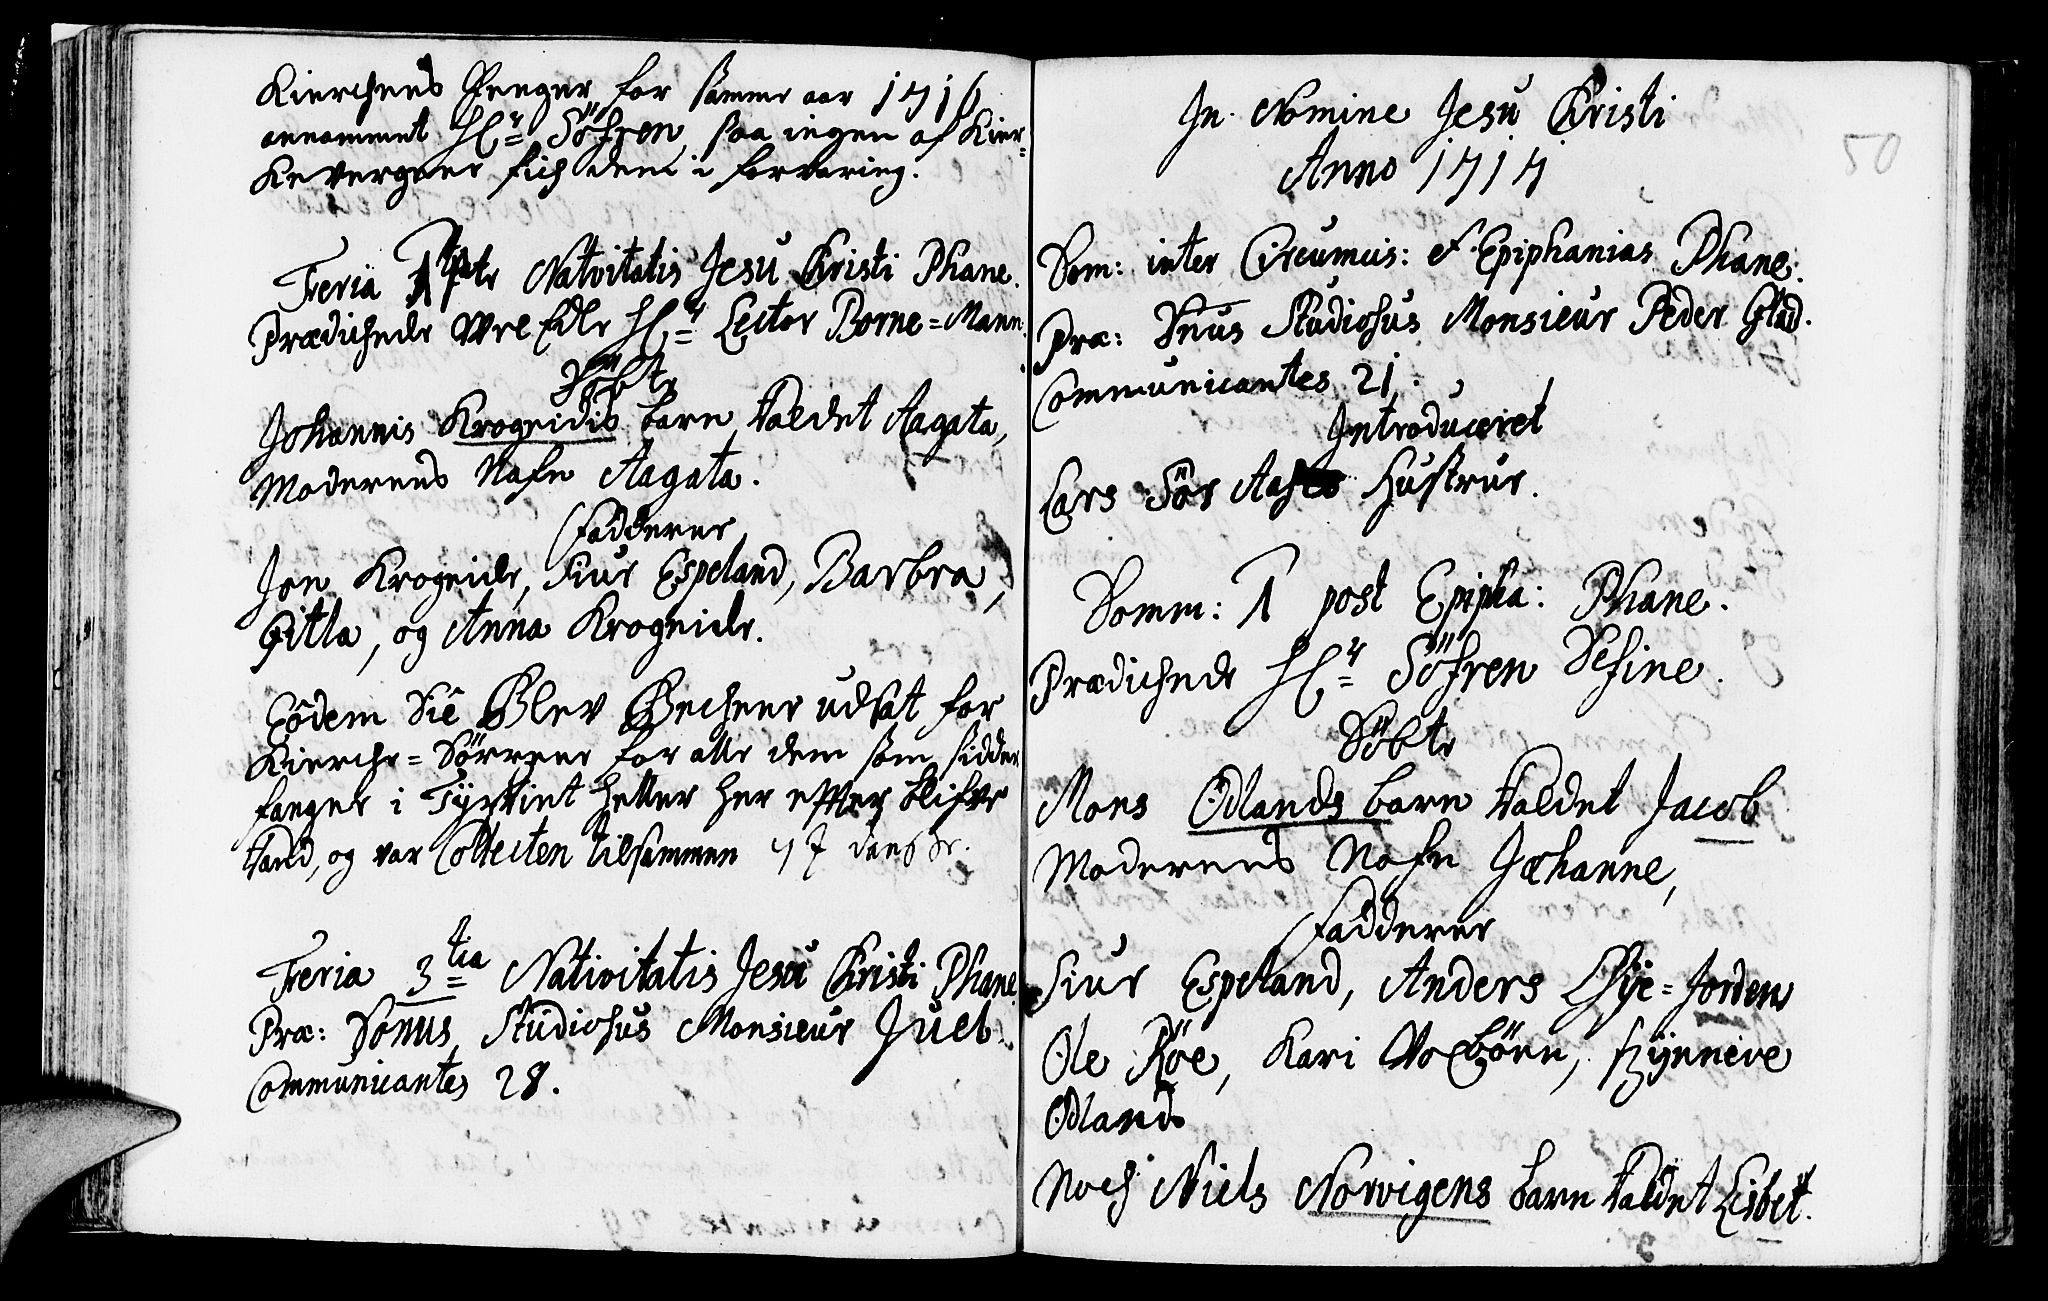 Kierchens Penger for samme aar 1716
annammet Hr: Söfren, saa ingen af Kier=
Kevergene fich dem i forvaring.
Feria Natvitatis Jesu Christi Phane.
Prædichede Vel Edle Hr: Lector Borne=Mann.
Döbte
Johannis Krogeidis barn, kaldet Aagata,
Moderens Nafn Aagata.
Fadderer
Jon Krogeide, Siur Espeland, Barbra,
Gitla, og Anna Krogeide.
Eôdem Die Blev Bechener udsat for
Kierche=Dörrene for alle dem som sidder
fanger i Tyrkiet heller her effter blifve
kand, og var Collecten tilsammen
Feria 3tia Nativitatis Jesu Christi Phane
Præ: Domus Studiosus Monsieur Juel.
Communicantes 28.
50
In Nomine Jesu Christi
Anno 1717
Dom: inter Circumcis: et Epiphanias Phane.
Præ: Dnus Studiosus Monsieur Peder Glad.
Communicantes 21.
Introduceret
Lars Sör Hustrue.
Domm: 1 post Epipha: Phane.
Prædichede Hr: Söfren Define.
Döbte
Mons Ødlands barn kaldet Jacob
Moderens Nafn Johanne,
Fadderer
Siur Espeland, Anders Øÿe=Jorden
Ole Röe, Kari Voxbörn, Sÿnneve
Ødland
Noch Niels Norvigens barn kaldet Lisbet.